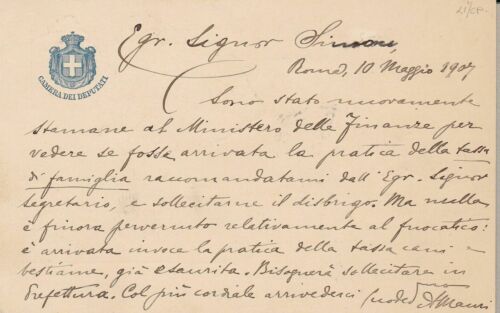 Egr. Signor Simoni,
Roma, 10 Maggio 1907
CAMERA DEI DEPUTATI
Sono stato nuovamente
stamane al Ministero delle Finanze per
vedere se fosse arrivata la pratica della tassa
di famiglia raccomandatami dall' Egr. Signor
Segretario, e sollecitarne il disbrigo. Ma nulla
è finora pervenuto relativamente al fuocatico:
è arrivata invece la pratica della tassa cani e
bestiame, già esaurita. Bisognerà sollecitare in
Prefettura. Col più cordiale arrivederci suo
A Mauri